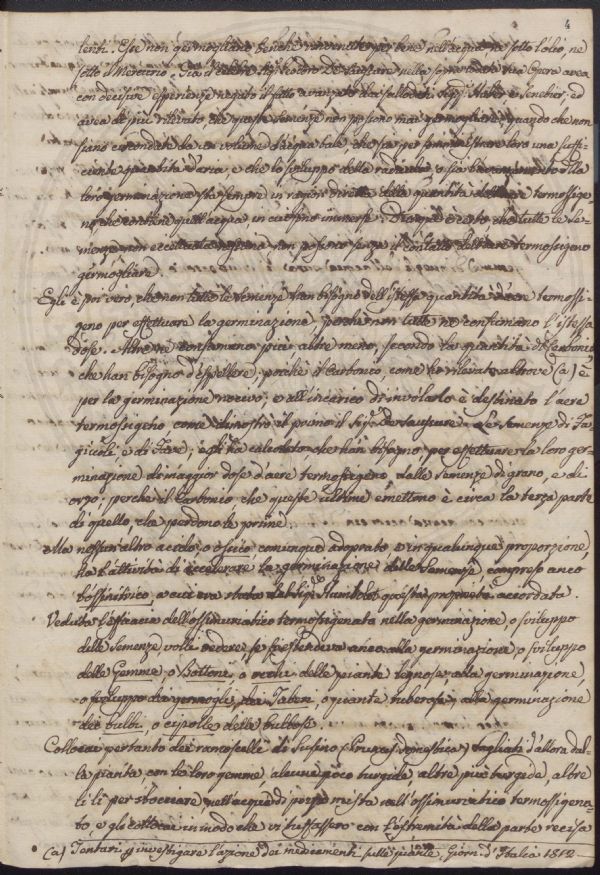 4
lenti. Esse non germogliano benchè rinvenute per bene nell'acqua, ne sotto l'olio, ne
sotto il Mercurio. Già il celebre Sig. Teodoro De Saussure nella sopra lodata sua Opera avea
con decisive esperienze negato il fatto avanzato dai lodati Sigg.ri Huber e Senebier, ed
avea di più rilevato, che queste semenze non possono mai germogliare, quando che non
siano circondate da un volume d'acqua tale, che sia per somministrare loro una suffi-
ciente quantità d'aria, e che lo sviluppo della radicula, o sia
loro germinazione sta sempre in ragion diretta della quantità dell'aere termossige-
no, che contiene quell'acqua, in cui sono immerse. Dunque è certo che tutte le Se-
menze non eccettuata nessuna non possono senza il contatto dell'aere termossigeno
germogliare.
Egli è poi vero che non tutte le Semenze han bisogno dell'istessa quantità d'aere termossi-
geno per effettuare la germinazione, perchè non tutte ne consumano l'istessa
dose. Altre ne consumano più, altre meno, secondo la quantità di Carbonio
che han bisogno d'espellere; poichè il Carbonio, come ho rilevato altrove (a) è
per la germinazione nocivo; e all'incarico di involarlo è destinato l'aere
termossigeno come dimostrò il primo il Sig. De Saussure. Le semenze di Fa-
giuoli, e di Fave, egli ha calcolato che han bisogno per effettuare la loro ger-
minazione di maggior dose d'aere termossigeno, delle semenze di grano, e di
orzo; perchè il Carbonio che queste ultime emettono è circa la terza parte
di quello, che perdono le prime.
Ma nessun altro acido, o ossido comunque adoprato e in qualunque proporzione,
ha l'attività di accelerare la germinazione delle Semenze, compreso anco
l'ossinitrico, a cui era stata dal Sig. Humboldt questa proprietà accordata.
Veduta l'efficacia dell'ossimuriatico termossigenato nella germinazione, o sviluppo
delle Semenze volli vedere se si estendeva anco alla germinazione, o sviluppo
delle Gemme, o Bottoni, o occhi delle piante legnose, alla germinazione,
o sviluppo dei germogli dei Tuberi, o piante tuberose, e alla germinazione
dei bulbi, o cipolle delle bulbose.
Collocai pertanto dei ramoscelli di Susino (Prunus domestica) tagliati d'allora dal-
la pianta con le loro gemme alcune poco turgide, altre più turgide, altre
lì lì per sbocciare, nell'acqua di pozzo mista all'ossimuriatico termossigena-
to, e gli collocai in modo che vi tuffassero con l'estremità della parte recisa
(a) Tentativi per investigare l'azione dei medicamenti sulle piante. Giorn. d'Italia 1812